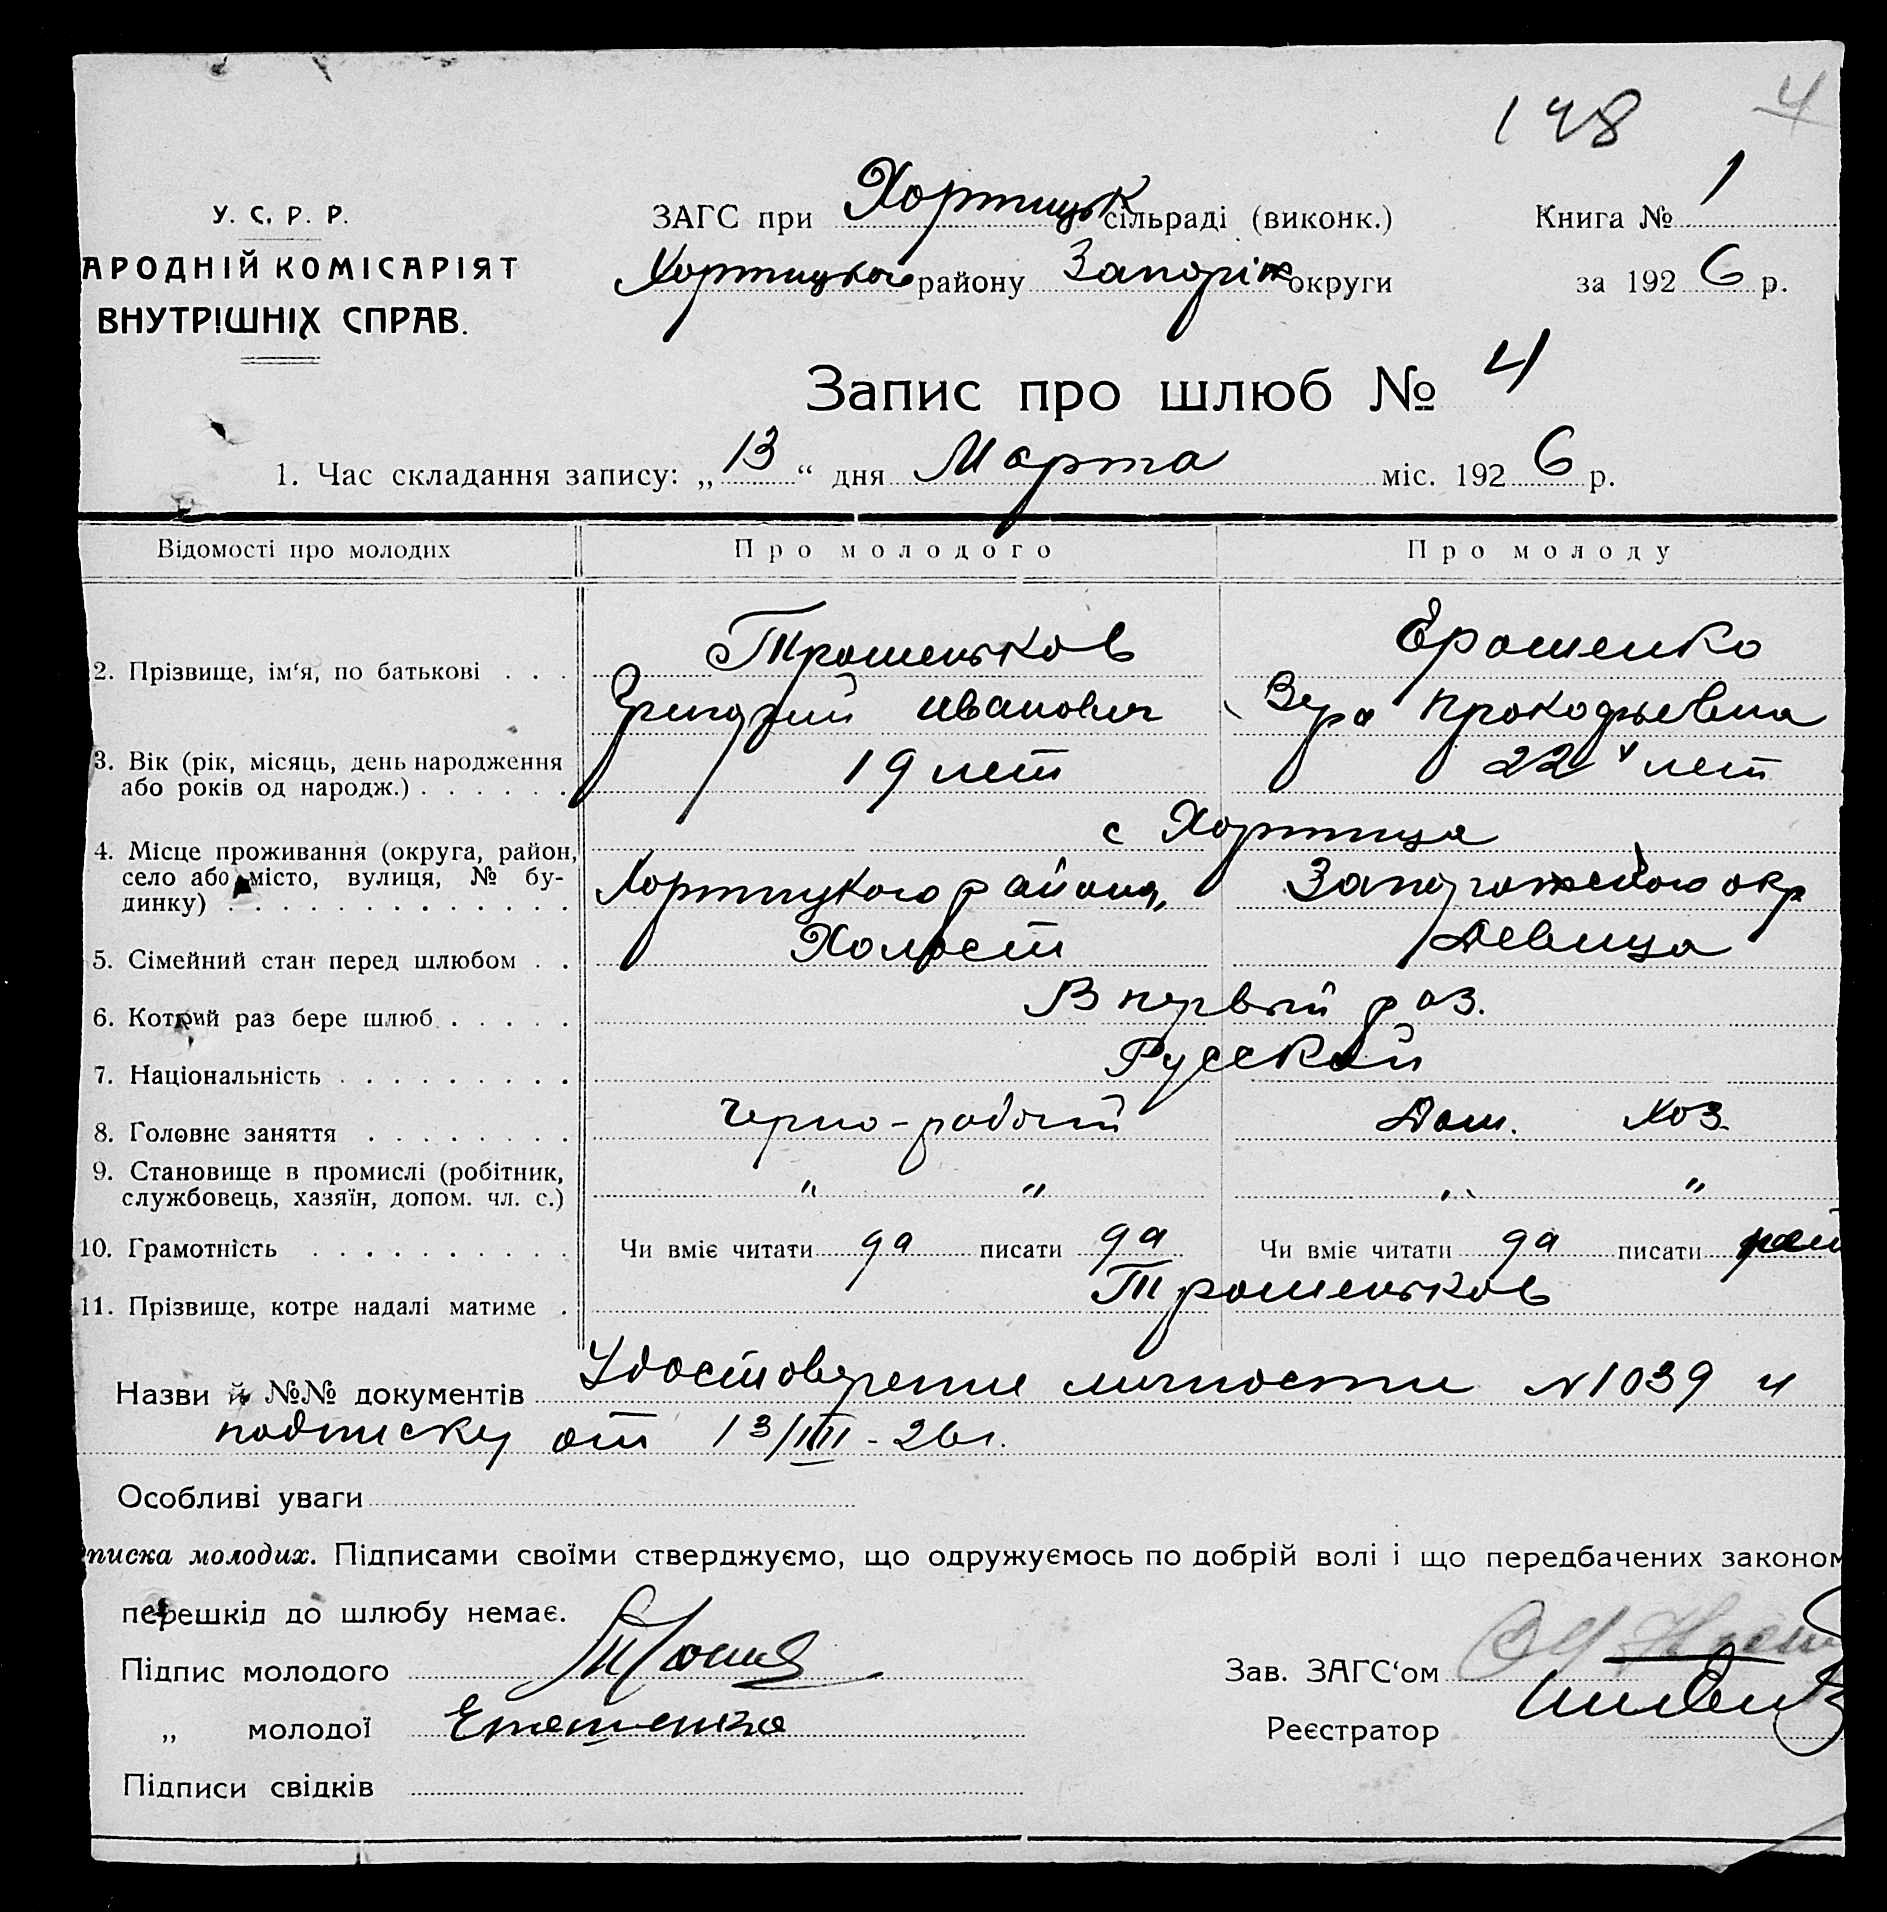 148 4
У. С. Р. Р.
АРОДНІЙ КОМІСАРІЯТ
ВНУТРІШНІХ СПРАВ.
ЗАГС при Хортицьк сільраді (виконк.)
Хортицького району Запоріж округи
Книга № 1
за 192 6 р.
Запис про шлюб № 4
1. Час складання запису: „ 13 “ дня Марта міс. 192 6 р.
Відомості про молодих Про молодого Про молоду
2. Прізвище, ім‘я, по батькові . . . Трошеньков Ерошенко
Григорий Иванович Вера Прокофьевна
3. Вік (рік, місяць, день народження
або років од народж.) . . . . . . 19 лет 22 лет
4. Місце проживання (округа, район, с Хортица
село або місто, вулиця, № бу-
динку) . . . . . . . . . . . . . Хортицкого района, Запорожского окр
5. Сімейний стан перед шлюбом . . Холост Девица
6. Котрий раз бере шлюб . . . . . В первый раз.
7. Національність . . . . . . . . . Русский
8. Головне заняття . . . . . . . . Черно-рабочий Дом. хоз.
9. Становище в промислі (робітник,
службовець, хазяїн, допом. чл. с.) " " " "
10. Грамотність . . . . . . . . . . Чи вміє читати да писати да Чи вміє читати да писати
11. Прізвище, котре надалі матиме . Трошеньков
Назви й №№ документів Удостоверение личности N 1039 и
подписку от 13/III - 26 г.
Особливі уваги
писка молодих. Підписами своїми стверджуємо, що одружуємось по добрій волі і що передбачених законом
перешкід до шлюбу немає.
Підпис молодого
Зав. ЗАГС‘ом
„ молодої Ерошенко
Реєстратор
Підписи свідків